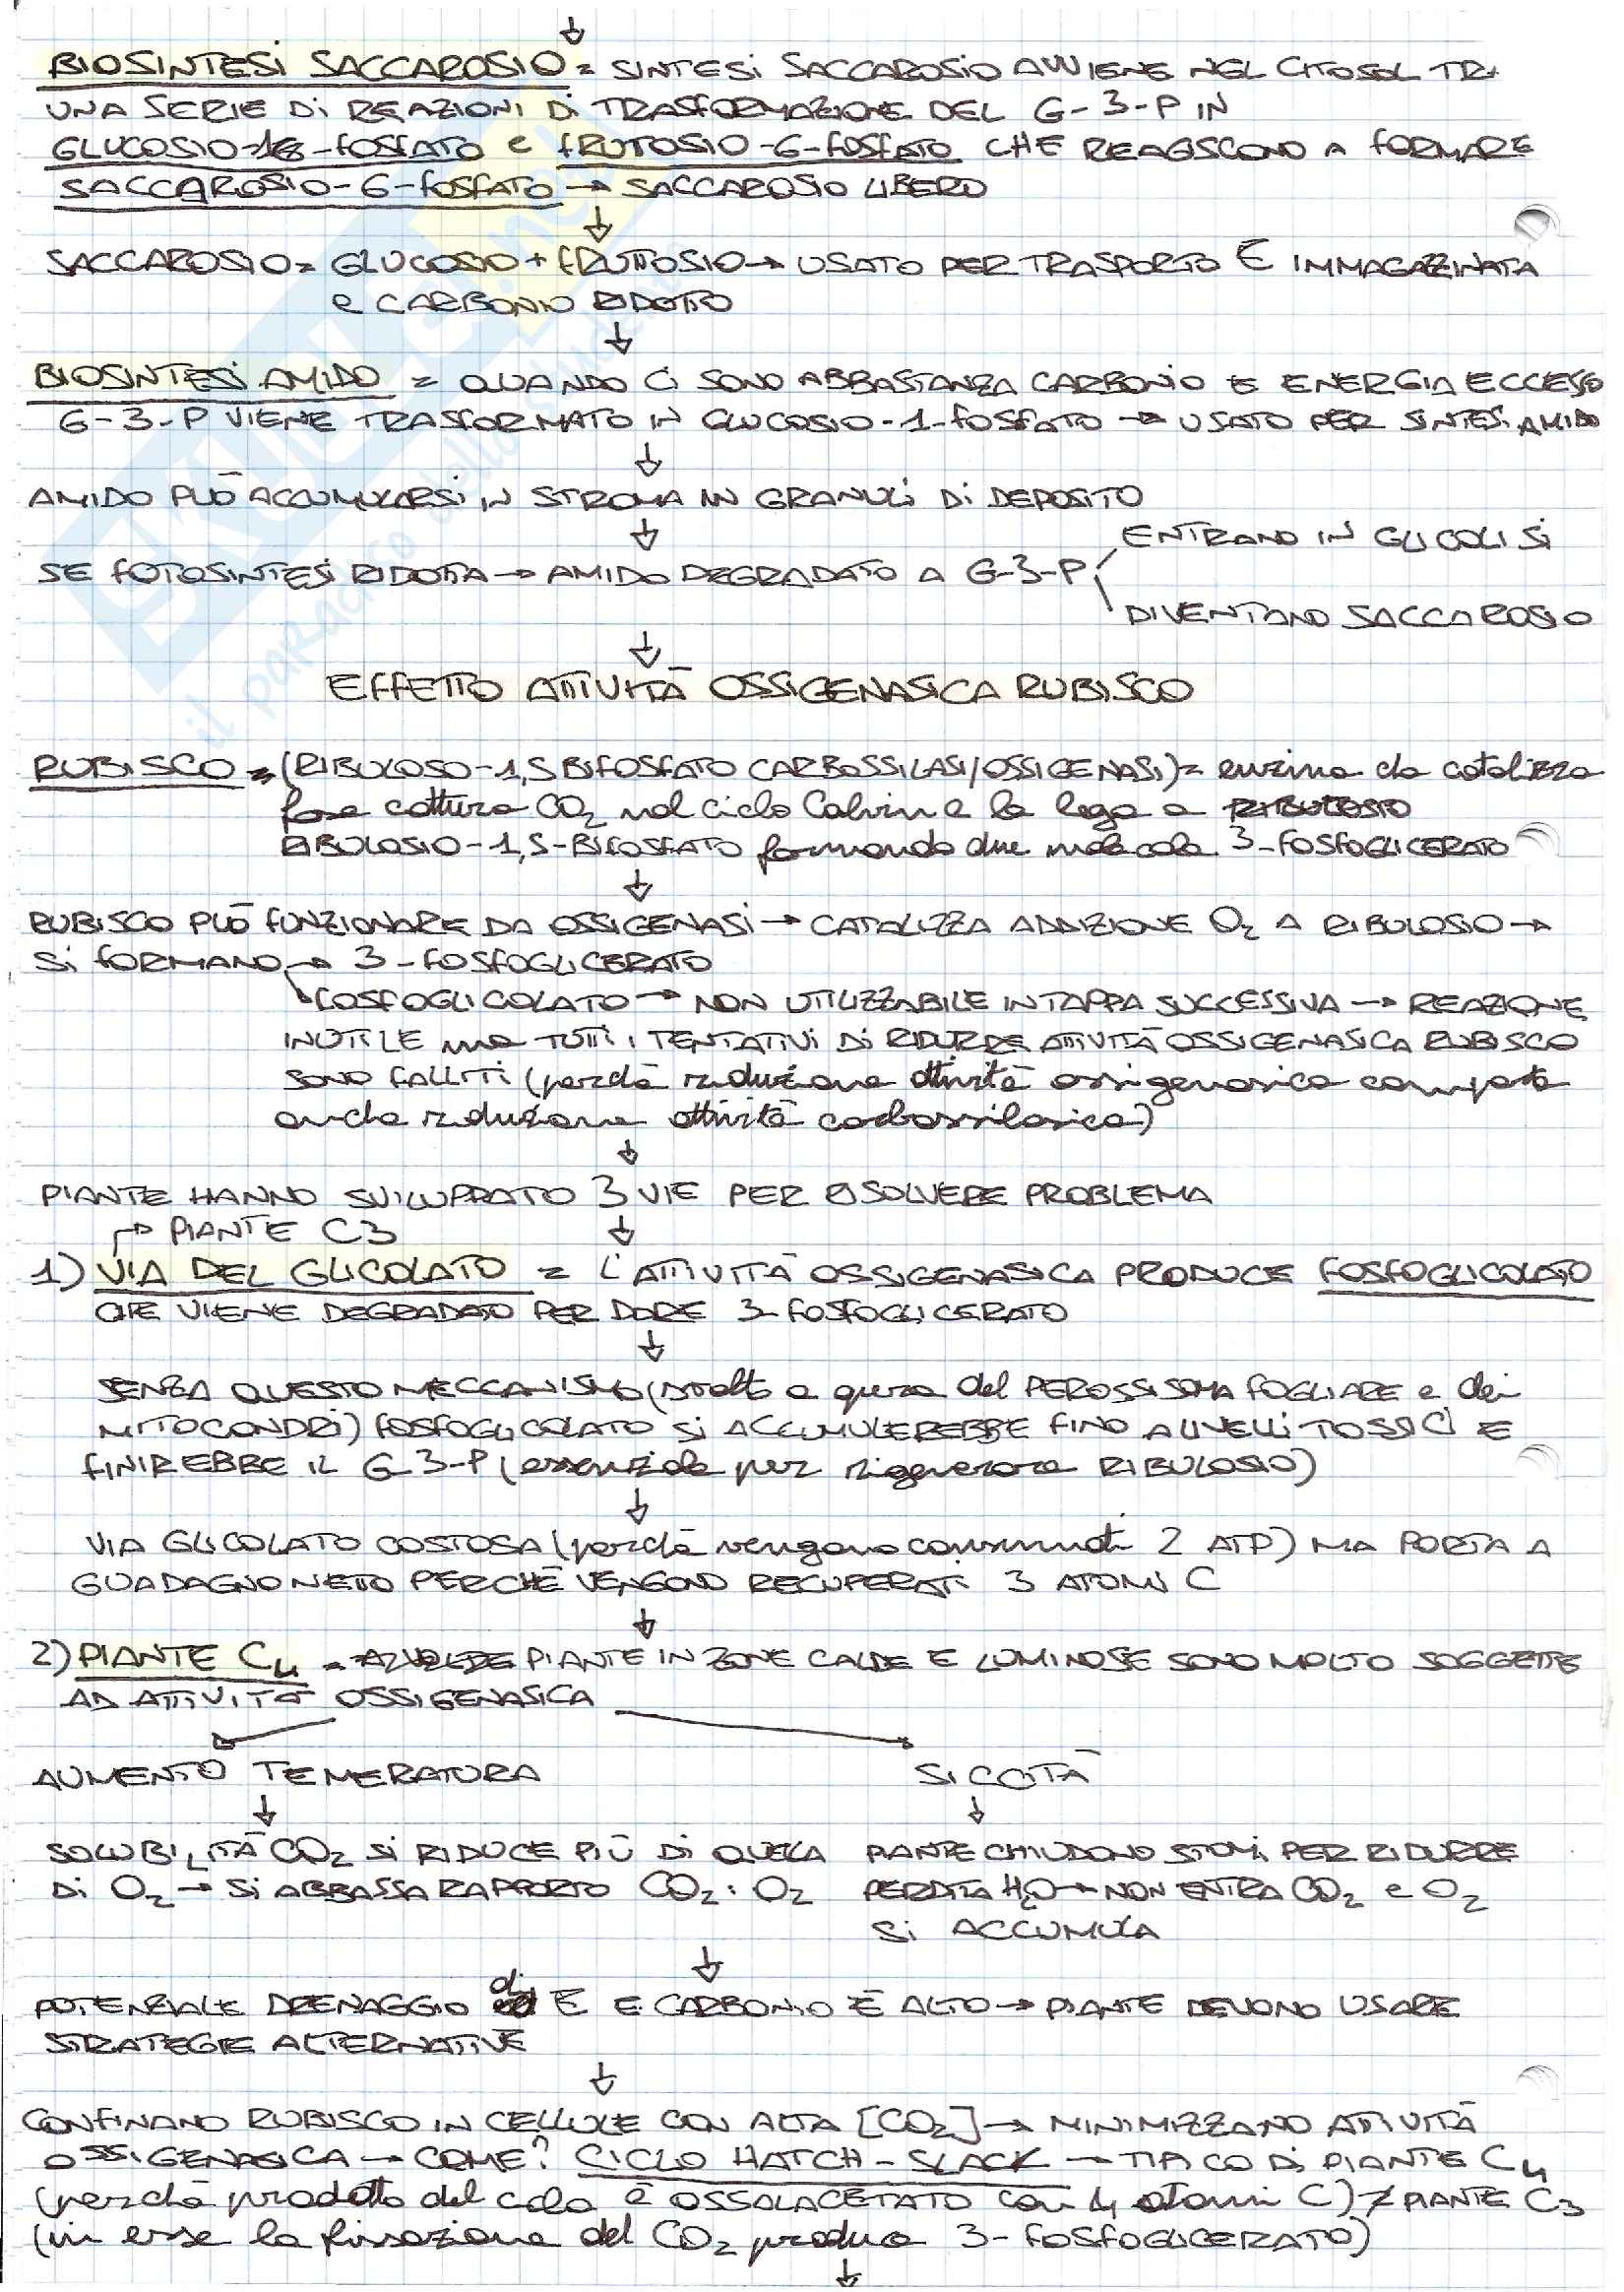 ↓
BIOSINTESI SACCAROSIO = SINTESI SACCAROSIO AVVIENE NEL CITOSOL TRA
UNA SERIE DI REAZIONI DI TRASFORMAZIONE DEL G-3-P IN
GLUCOSIO-1-FOSFATO e FRUTTOSIO-6-FOSFATO CHE REAGISCONO A FORMARE
SACCAROSIO-6-FOSFATO → SACCAROSIO LIBERO
↓
SACCAROSIO = GLUCOSIO + FRUTTOSIO → USATO PER TRASPORTO E IMMAGAZZINATA
e CARBONIO RIDOTTO
↓
BIOSINTESI AMIDO = QUANDO CI SONO ABBASTANZA CARBONIO E ENERGIA ECCESSO
G-3-P VIENE TRASFORMATO IN GLUCOSIO-1-FOSFATO → USATO PER SINTESI AMIDO
↓
AMIDO PUÒ ACCUMULARSI IN STROMA IN GRANULI DI DEPOSITO
↓
ENTRANO IN GLICOLISI
SE FOTOSINTESI RIDOTTA → AMIDO DEGRADATO A G-3-P
DIVENTANO SACCAROSIO
↓
EFFETTO ATTIVITÀ OSSIGENASICA RUBISCO
RUBISCO = (RIBULOSO-1,5 BIFOSFATO CARBOSSILASI/OSSIGENASI) = enzima che catalizza
fase cattura CO2 nel ciclo Calvin e la lega a
RIBULOSIO-1,5-BIFOSFATO formando due molecole 3-FOSFOGLICERATO
↓
RUBISCO PUÒ FUNZIONARE DA OSSIGENASI → CATALIZZA ADDIZIONE O2 A RIBULOSIO →
SI FORMANO → 3-FOSFOGLICERATO
FOSFOGLICOLATO → NON UTILIZZABILE IN TAPPA SUCCESSIVA → REAZIONE
INUTILE ma TUTTI I TENTATIVI DI RIDURRE ATTIVITÀ OSSIGENASICA RUBISCO
SONO FALLITI (perchè riduzione attività ossigenasica comporta
anche riduzione attività carbossilasica)
↓
PIANTE HANNO SVILUPPATO 3 VIE PER RISOLVERE PROBLEMA
→ PIANTE C3 ↓
1) VIA DEL GLICOLATO = L'ATTIVITÀ OSSIGENASICA PRODUCE FOSFOGLICOLATO
CHE VIENE DEGRADATO PER DARE 3-FOSFOGLICERATO
↓
SENZA QUESTO MECCANISMO (svolto a opera del PEROSSISOMA FOGLIARE e dei
MITOCONDRI) FOSFOGLICOLATO SI ACCUMULEREBBE FINO A LIVELLI TOSSICI E
FINIREBBE IL G3-P (essenziale per rigenerare RIBULOSIO)
↓
VIA GLICOLATO COSTOSA (perchè vengono consumati 2 ATP) MA PORTA A
GUADAGNO NETTO PERCHÈ VENGONO RECUPERATI 3 ATOMI C
↓
2) PIANTE C4 = PIANTE IN ZONE CALDE E LUMINOSE SONO MOLTO SOGGETTE
AD ATTIVITÀ OSSIGENASICA
AUMENTO TEMERATURA SICCITÀ
↓ ↓
SOLUBILITÀ CO2 SI RIDUCE PIÙ DI QUELLA PIANTE CHIUDONO STOMI PER RIDURRE
DI O2 → SI ABBASSA RAPPORTO CO2:O2 PERDITA H2O → NON ENTRA CO2 e O2
SI ACCUMULA
↓
POTENZIALE DRENAGGIO di E E CARBONIO È ALTO → PIANTE DEVONO USARE
STRATEGIE ALTERNATIVE
↓
CONFINANO RUBISCO IN CELLULE CON ALTA [CO2] → MINIMIZZANO ATTIVITÀ
OSSIGENASICA → COME? CICLO HATCH-SLACK → TIPICO DI PIANTE C4
(perchè prodotto del ciclo è OSSALACETATO con 4 atomi C) ≠ PIANTE C3
(in esse la fissazione del CO2 produce 3-FOSFOGLICERATO)
↓